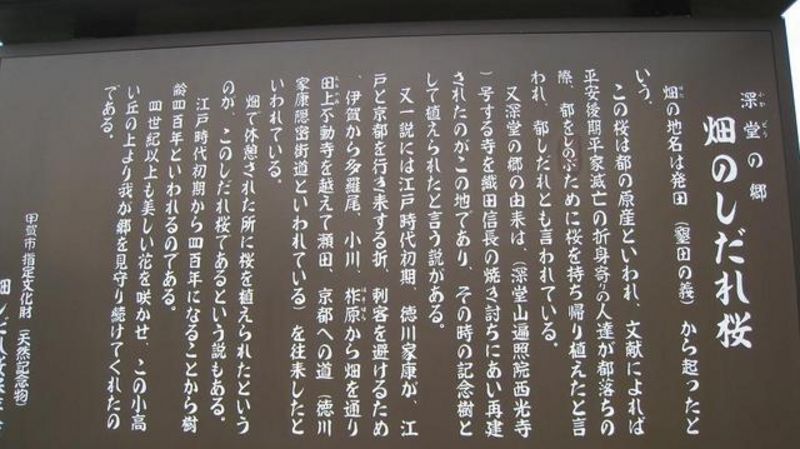 深堂の郷
ふかどう
畑のしだれ桜
畑の地名は発田（墾田の義）から起ったと
はた
いう。
この桜は都の原産といわれ、文献によれば
平安後期平家滅亡の折身寄りの人達が都落ちの
際、都をしのぶために桜を持ち帰り植えたと言
われ、都しだれとも言われている。
又深堂の郷の由来は、（深堂山遍照院西光寺
）号する寺を織田信長の焼き討ちにあい再建
されたのがこの地であり、その時の記念樹と
して植えられたと言う説がある。
又一説には江戸時代初期、徳川家康が、江
戸と京都を行き来する折、刺客を避けるため
、伊賀から多羅尾、小川、柞原から畑を通り
田上不動寺を越えて瀬田、京都への道（徳川
家康隠密街道といわれている）を往来したと
いわれている。
畑で休憩された所に桜を植えられたという
のが、このしだれ桜であるという説もある。
江戸時代初期から四百年になることから樹
齢四百年といわれるのである。
四世紀以上も美しい花を咲かせ、この小高
い丘の上より我が郷を見守り続けてくれたの
である。
甲賀市指定文化財（天然記念物）
畑しだれ桜